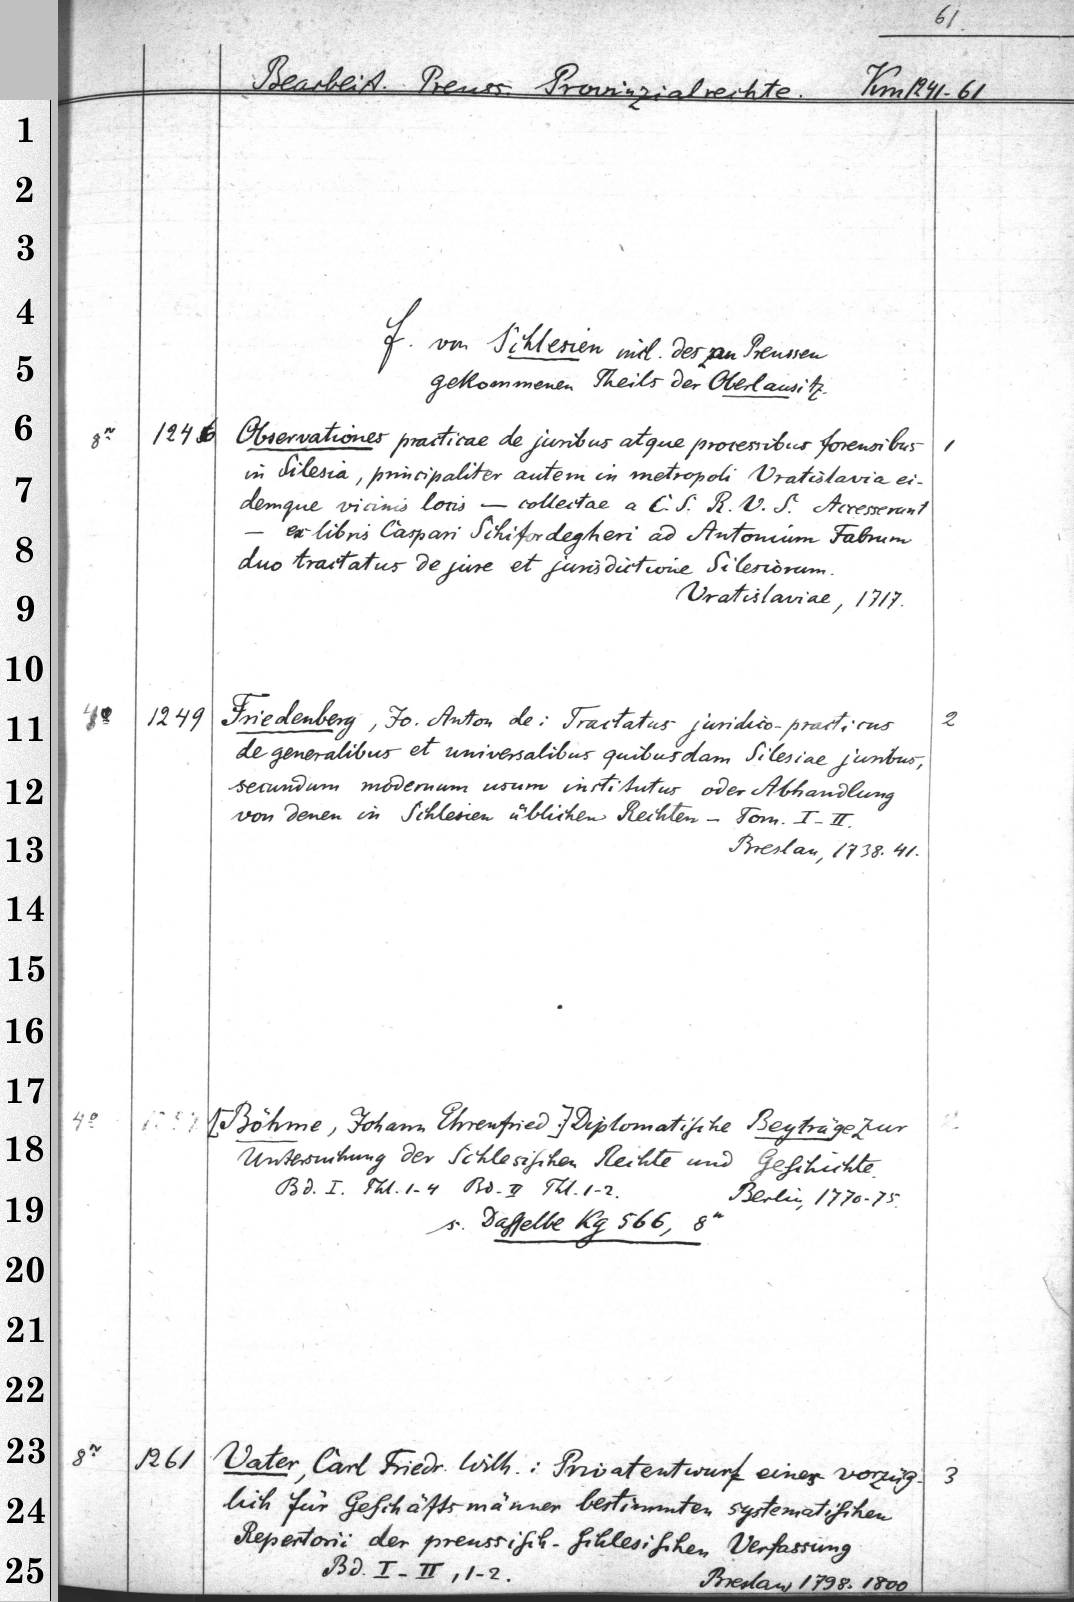 61.
Bearbeit. Preuss. Provinzialrechte. Km 1241-61
f. von Schlesien incl. des an Preussen
gekommenen Theils der Oberlausitz.
8° 1246 Observationes practicae de juribus atque processibus forensibus 1
in Silesia, principaliter autem in metropoli Vratislavia ei-
demque vicinis locis — collectae a C. S. R. V. S. Accesserunt
— ex libris Caspari Schifordegheri ad Antonium Fabrum
duo tractatus de jure et jurisdictione Silesiorum.
Vratislaviae, 1717.
4° 1249 Friedenberg, Jo. Anton de: Tractatus juridico-practicus 2
de generalibus et universalibus quibusdam Silesiae juribus,
secundum modernum usum institutus oder Abhandlung
von denen in Schlesien üblichen Rechten — Tom. I-II.
Breslau, 1738. 41.
4° [Böhme, Johann Ehrenfried:] Diplomatische Beyträge zur
Untersuchung der Schlesischen Rechte und Geschichte.
Bd. I. Thl. 1-4 Bd. II Thl. 1-2. Berlin, 1770-75.
s. Dasselbe Kg 566, 8°
8° 1261 Vater, Carl Friedr. Wilh.: Privatentwurf eines vorzüg- 3
lich für Geschäftsmänner bestimmten systematischen
Repertorii der preussisch-schlesischen Verfassung
Bd. I-II, 1-2. Breslau 1798. 1800
1
2
3
4
5
6
7
8
9
10
11
12
13
14
15
16
17
18
19
20
21
22
23
24
25